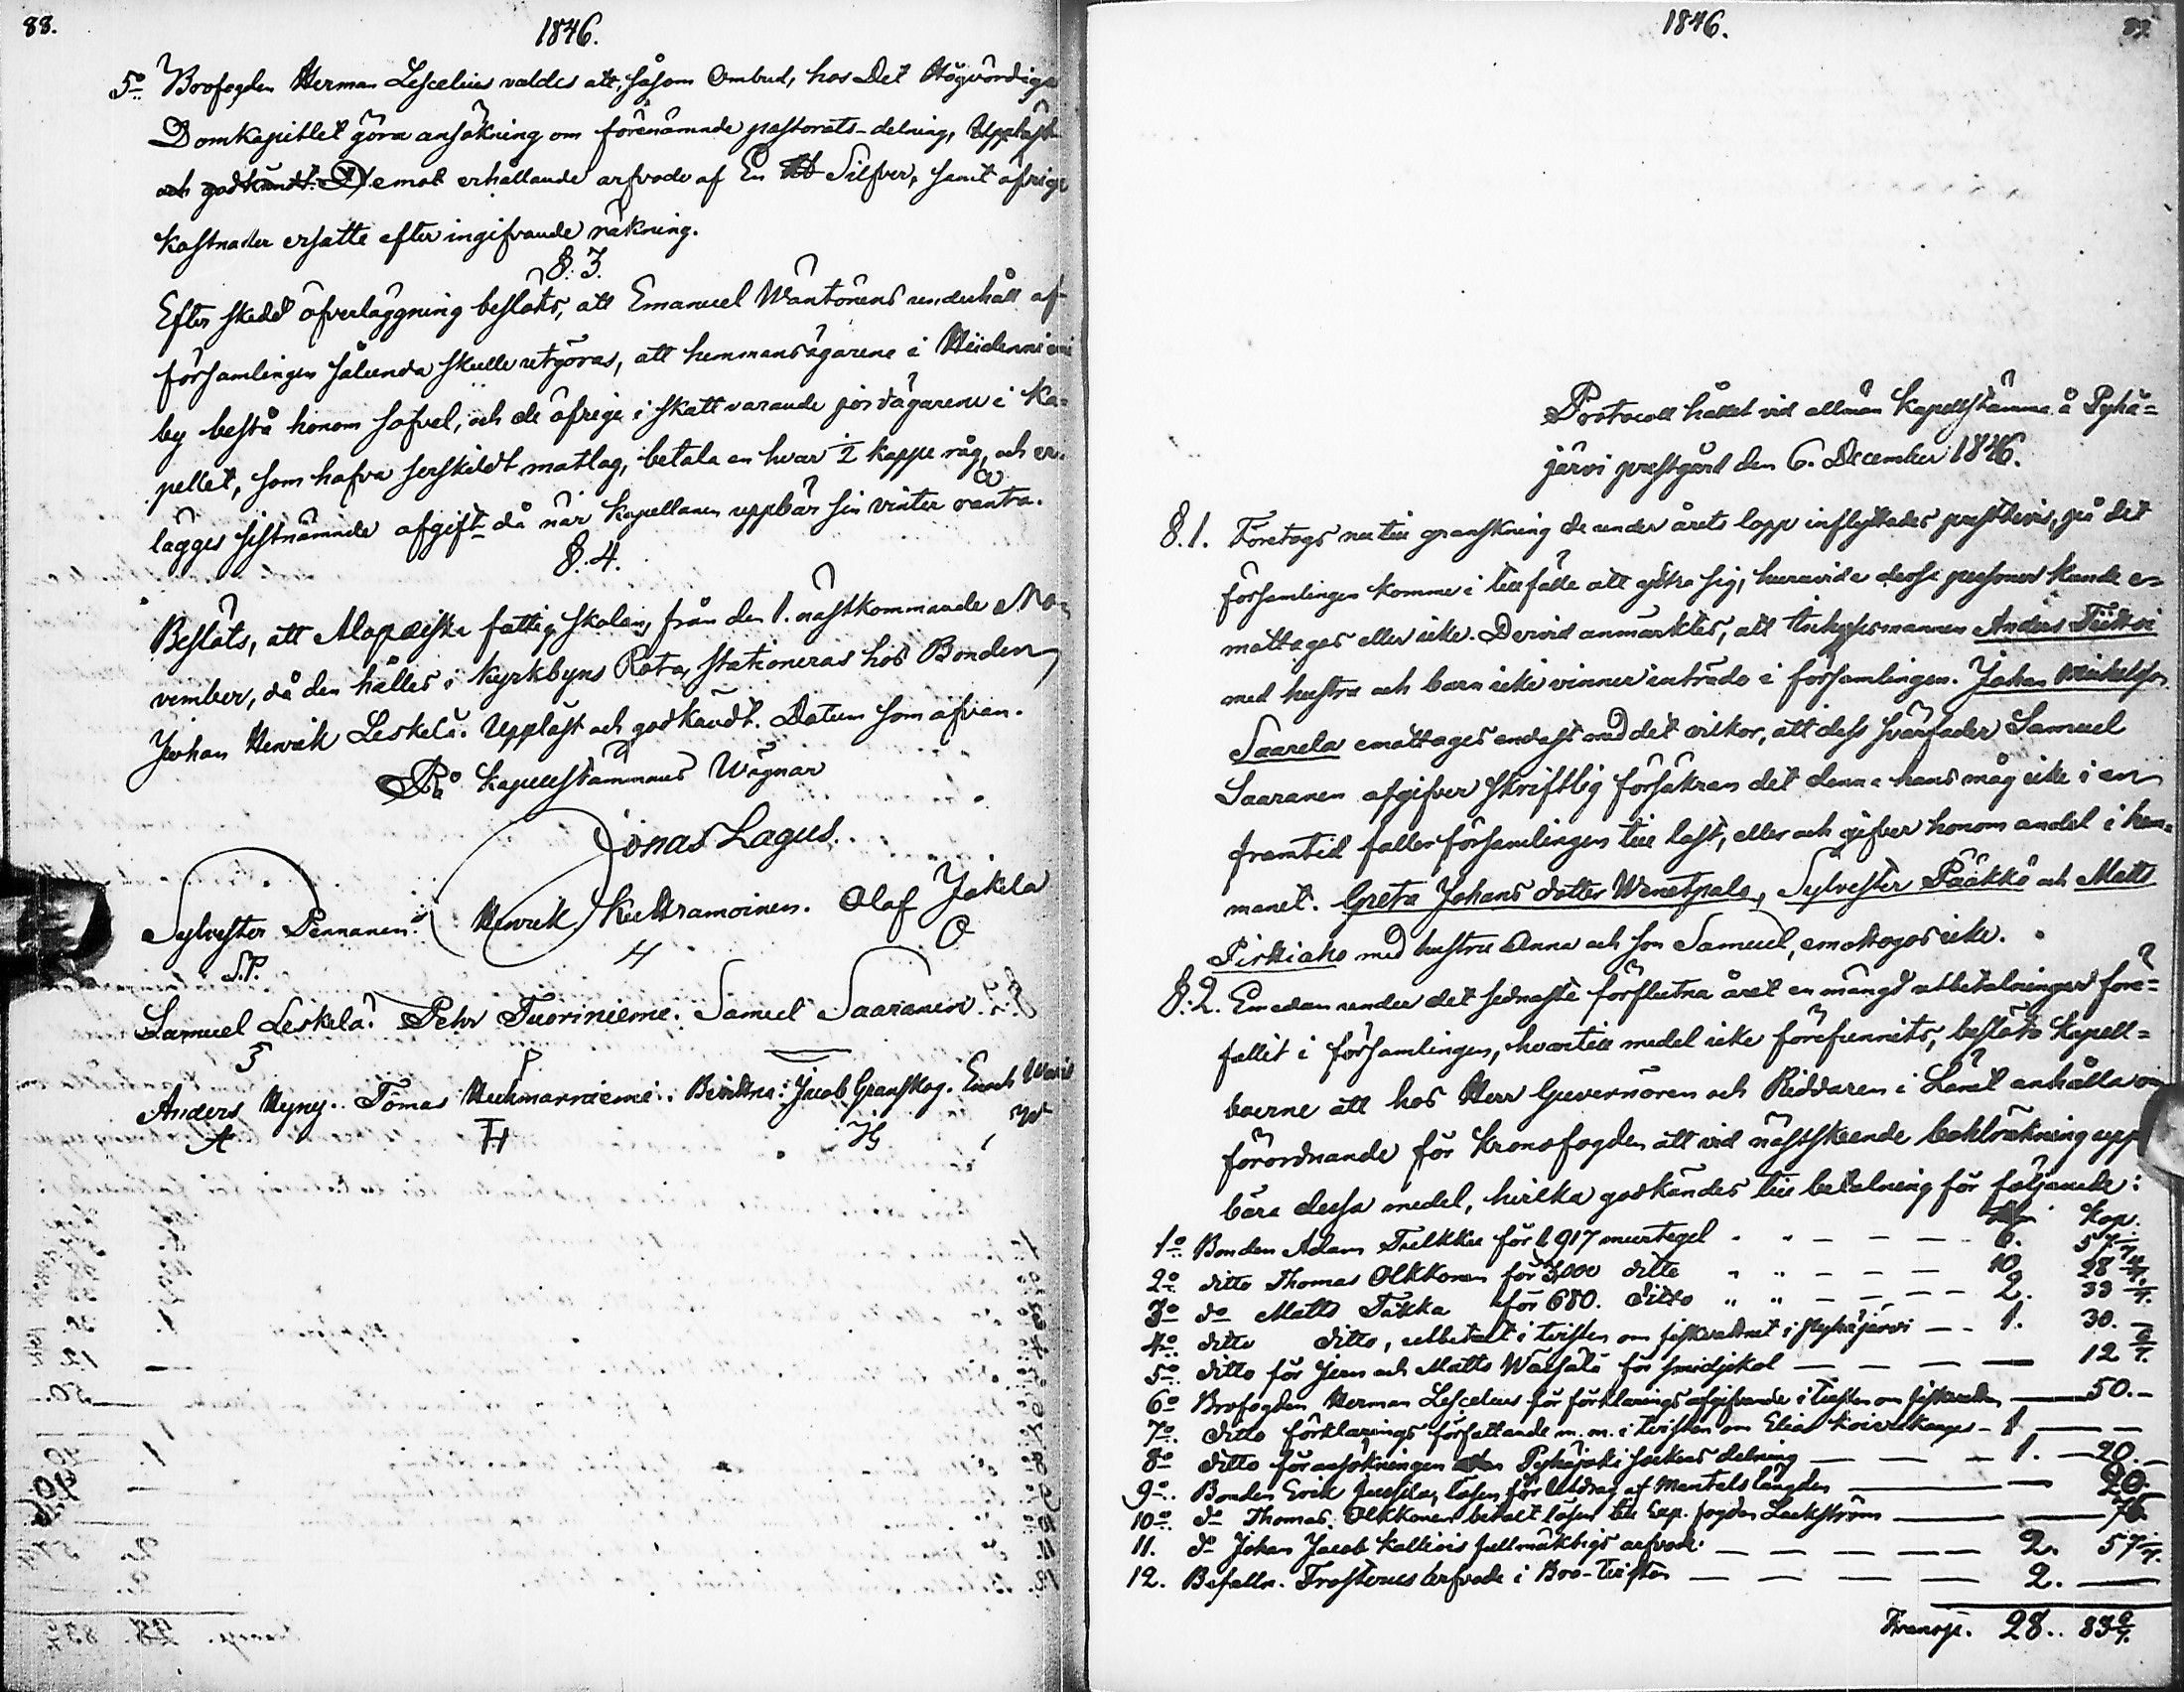 88.
1846.
5o Brofogden Herman Lescelius valdes att, såsom Ombud, hos Det Högvördiga
Domkapitlet göra ansökning om förenämnde pastorats-delning, Uppläst
och godkändt. D emot erhållande arfvode af En Silfver, samt öfrige
kostnader ersatte efter ingifvande räkning.
§. 3.
Efter skedd öfverläggning beslöts, att Emanuel Wäntönens underhåll af
församlingen sålunda skulle utgöras, att hemmansägarene i Hiidenniemi
by bestå honom sofvel, och de öfrige i skatt varande jordägarene i Ka-
pellet, som hafva serskildt matlag, betala en hvar ½ kappe råg, och er-
lägges sistnämnde afgift då när Kapellanen uppbär sin vinter ränta.
§. 4.
Beslöts, att Alopæiska fattig skolan, från den 1. nästkommande No-
vember, då den hålles i Kyrkbyns Rota, stationeras hos Bonden
Johan Henrik Leskelä. Uppläst och godkändt. Datum som ofvan.
På Kapellstämmans Wägnar
Jonas Lagus.
Sylvester Pennanen. Henrik Kuktramoinen. Olof Jokela
S.P. H O
Samuel Leskelä. Pehr Tuoriniemi. Samuel Saaranen.
Anders Hyny. Tomas Huhmarniemi. Bevittna: Jacob Granskog. Enoch
A TH JG
1846.
Protocoll hållet vid allmän Kapellstämma å Pyhä-
järvi prestgård den 6. December 1846.
§. 1. Företogs nu till granskning de under årets lopp inflyttades prestbevis, på det
församlingen komme i tillfälle att yttra sig, huruvida desse personer kunde e-
mottages eller icke. Dervid anmärktes, att inhysesmannen Anders Tiikkoi
med hustru och barn icke vinner inträde i församlingen. Johan Mickelsson
Saarela emottages endast med det vilkor, att dess svärfader Samuel
Saaranen afgifver skriftlig försäkran det denna hans måg icke i en
framtid faller församlingen till last, eller och gifver honom andel i hem-
manet. Greta Johans dotter Wenetpalo, Sylvester Pääkkö och Matts
Pirkiaho med hustru Anna och son Samuel, emottogos icke.
§. 2. Emedan under det sednaste förflutna året en mängd utbetalningar före-
fallit i församlingen, hvartill medel icke förefunnits, beslöto Kapell-
boerne att hos Herr Guvernören och Riddaren i Länet anhålla om
förordnande för Kronofogden att vid nästskeende bokräkning upp
bära dessa medel, hvilka godkändes till betalning för följande:
Kop.
1o Bonden Adam Tulkku för 1917 murtegel " " — — — 6. 57 1/7
2o ditto Thomas Olkkonen för 3,000 ditto " " — — — 10 28 4/7
3o do Matts Takka för 680. ditto " " — — — 2. 33 1/7.
4o ditto ditto, utbetalt i tvisten om fiskvattnet i Pyhäjärvi — — 1. 30. —
5o ditto för Jern och Matts Wäisälä för smidjekol — — — — 12 6/7.
6o Brofogden Herman Lescelius för förklarings afgifvande i tvisten om fiskvatten — 50. —
7o ditto förklarings författande m. m. i tvisten om Elias Koivukangas — 1 — —
8o ditto för ansökningen om Pyhäjoki sockens delning — — — 1. — 20. —
9o Bonden Erik Jussila, lösen för Utdrag af Mantals längden — — 20.
10o do Thomas Olkkonen betalt lösen till Exp. fogden Lackström — — 76
11. do Johan Jacob Kallioi fullmäktigs arfvode — — — — — 2. 57 1/7.
12. Befalln. Trosterus Arfvode i Bro-tvisten — — — — 2. —
Transp. 28.. 83 6/7.